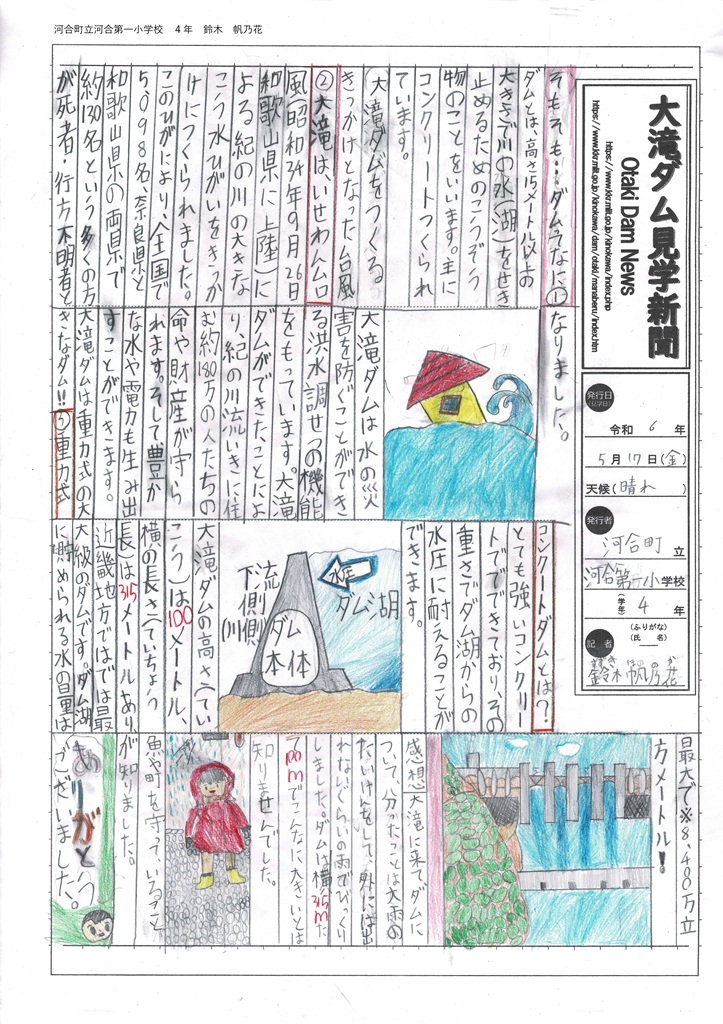 河合町立河合第一小学校　4年　鈴木　帆乃花
大滝ダム見学新聞
Otaki Dam News
https://www.kkr.mlit.go.jp/kinokawa/index.php
https://www.kkr.mlit.go.jp/kinokawa/dam/otaki/manaberu/index.htm
発行日
令和 6 年
5月17日(金)
天候(晴れ)
発行者
河合町 立
河合第一小学校
(学年) 4 年
記者
(ふりがな)
(氏　名)
すずき ほのか
鈴木 帆乃花
そもそも…ダムってなに?①
ダムとは、高さ15メートル以上の
大きさで川の水(湖)をせき
止めるためのこうぞう
物のことをいいます。主に
コンクリートつくられ
ています。
大滝ダムをつくる
きっかけとなった台風
②大滝は、いせわん台
風(昭和34年9月26日
和歌山県に上陸)に
よる紀の川の大きな
こう水ひがいをきっか
けにつくられました。
このひがにより、全国で
5,098名、奈良県と
和歌山県の両県で
約130名という多くの方
が死者・行方不明者と
なりました。
大滝ダムは水の災
害を防ぐことができ
る洪水調せつの機能
をもっています。大滝
ダムができたことによ
り、紀の川流いきに住
む約180万の人たちの
命や財産が守ら
れます。そして豊か
な水や電力も生み出
すことができます。
大滝ダムは重力式の大
きなダム!!③重力式
コンクートダムとは?
とても強いコンクリー
トでできており、その
重さでダム湖からの
水圧に耐えることが
できます。
水圧
ダム湖
ダム
本体
下流
側側
(川)
大滝ダムの高さ(てい
こう)は100メートル、
横の長さ(ていちょう
長)は315メートルあり
近畿地方ではでは最
大級のダムです。ダム湖
に貯められる水の量は
最大で※8,400万立
方メートル!
感想 大滝に来て、ダムに
ついて、分かったことは大雨の
たいけんをして、外には出
れないくらいの雨でびっくり
しました。ダムは横315mた
て100mでこんなに大きいとは
知りませんでした。
魚や町を守って、いること
が知りました。
ありがとう
ございました。